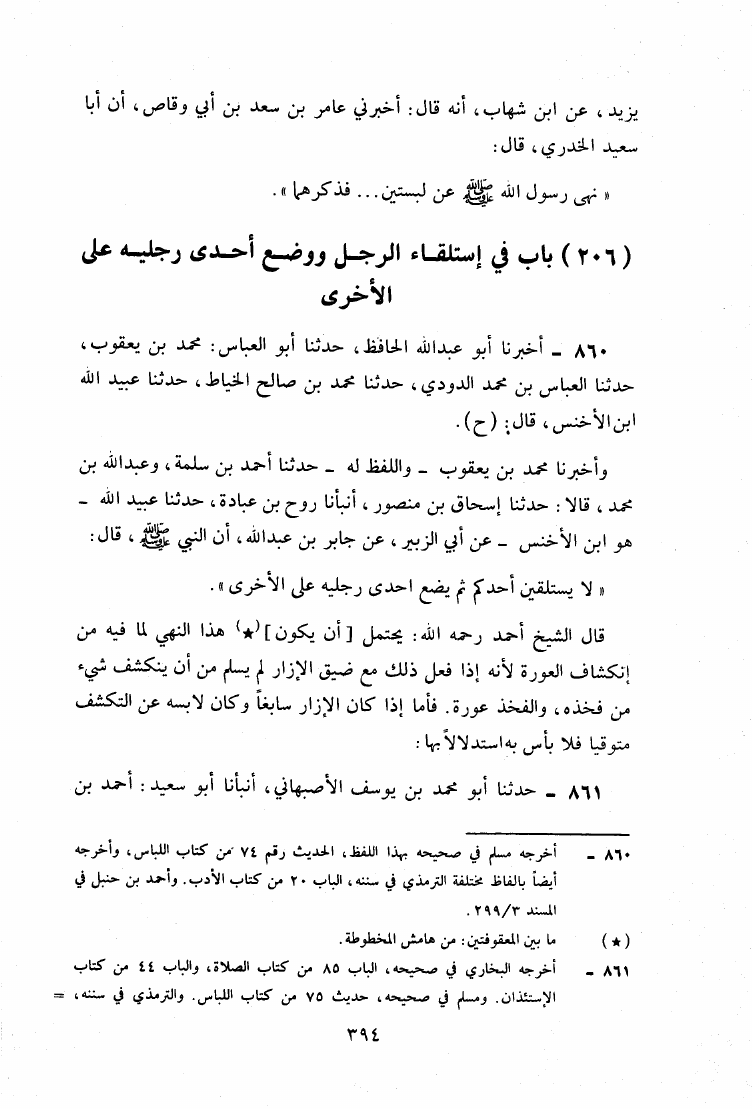 يزيد، عن ابن شهاب، أنه قال: أخبرني عامر بن سعد بن أبي وقاص، أن أبا
سعيد الخدري، قال:
« نهى رسول الله ﷺ عن لبستين... فذكرهما ».
(٢٠٦) باب في إستلقاء الرجل ووضع أحدى رجليه على
الأخرى
٨٦٠ ـ أخبرنا أبو عبدالله الحافظ، حدثنا أبو العباس: محمد بن يعقوب،
حدثنا العباس بن محمد الدودي، حدثنا محمد بن صالح الخياط، حدثنا عبيد الله
ابن الأخنس، قال: (ح).
وأخبرنا محمد بن يعقوب ـ واللفظ له ـ حدثنا أحمد بن سلمة، وعبدالله بن
محمد، قالا: حدثنا إسحاق بن منصور، أنبأنا روح بن عبادة، حدثنا عبيد الله ـ
هو ابن الأخنس ـ عن أبي الزبير، عن جابر بن عبدالله، أن النبي ﷺ، قال:
« لا يستلقين أحدكم ثم يضع احدى رجليه على الأخرى ».
قال الشيخ أحمد رحمه الله: يحتمل [أن يكون](★) هذا النهي لما فيه من
إنكشاف العورة لأنه إذا فعل ذلك مع ضيق الإزار لم يسلم من أن ينكشف شيء
من فخذه، والفخذ عورة. فأما إذا كان الإزار سابغاً وكان لابسه عن التكشف
متوقيا فلا بأس به استدلالاً بها:
٨٦١ ـ حدثنا أبو محمد بن يوسف الأصبهاني، أنبأنا أبو سعيد: أحمد بن
٨٦٠ ـ أخرجه مسلم في صحيحه بهذا اللفظ، الحديث رقم ٧٤ من كتاب اللباس، وأخرجه
أيضاً بالفاظ مختلفة الترمذي في سننه، الباب ٢٠ من كتاب الأدب. وأحمد بن حنبل في
المسند ٢٩٩/٣.
(★) ما بين المعقوفتين: من هامش المخطوطة.
٨٦١ ـ أخرجه البخاري في صحيحه، الباب ٨٥ من كتاب الصلاة، والباب ٤٤ من كتاب
الإستئذان. ومسلم في صحيحه، حديث ٧٥ من كتاب اللباس. والترمذي في سننه، =
٣٩٤